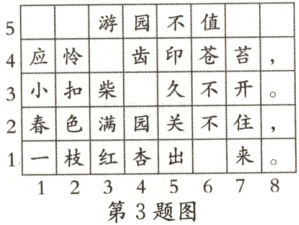 5 游园不值
4 应怜 齿印苍苔，
3 小扣柴 久不开。
2 春色满园关不住，
1 一枝红杏出 来。
1 2 3 4 5 6 7 8
第3题图